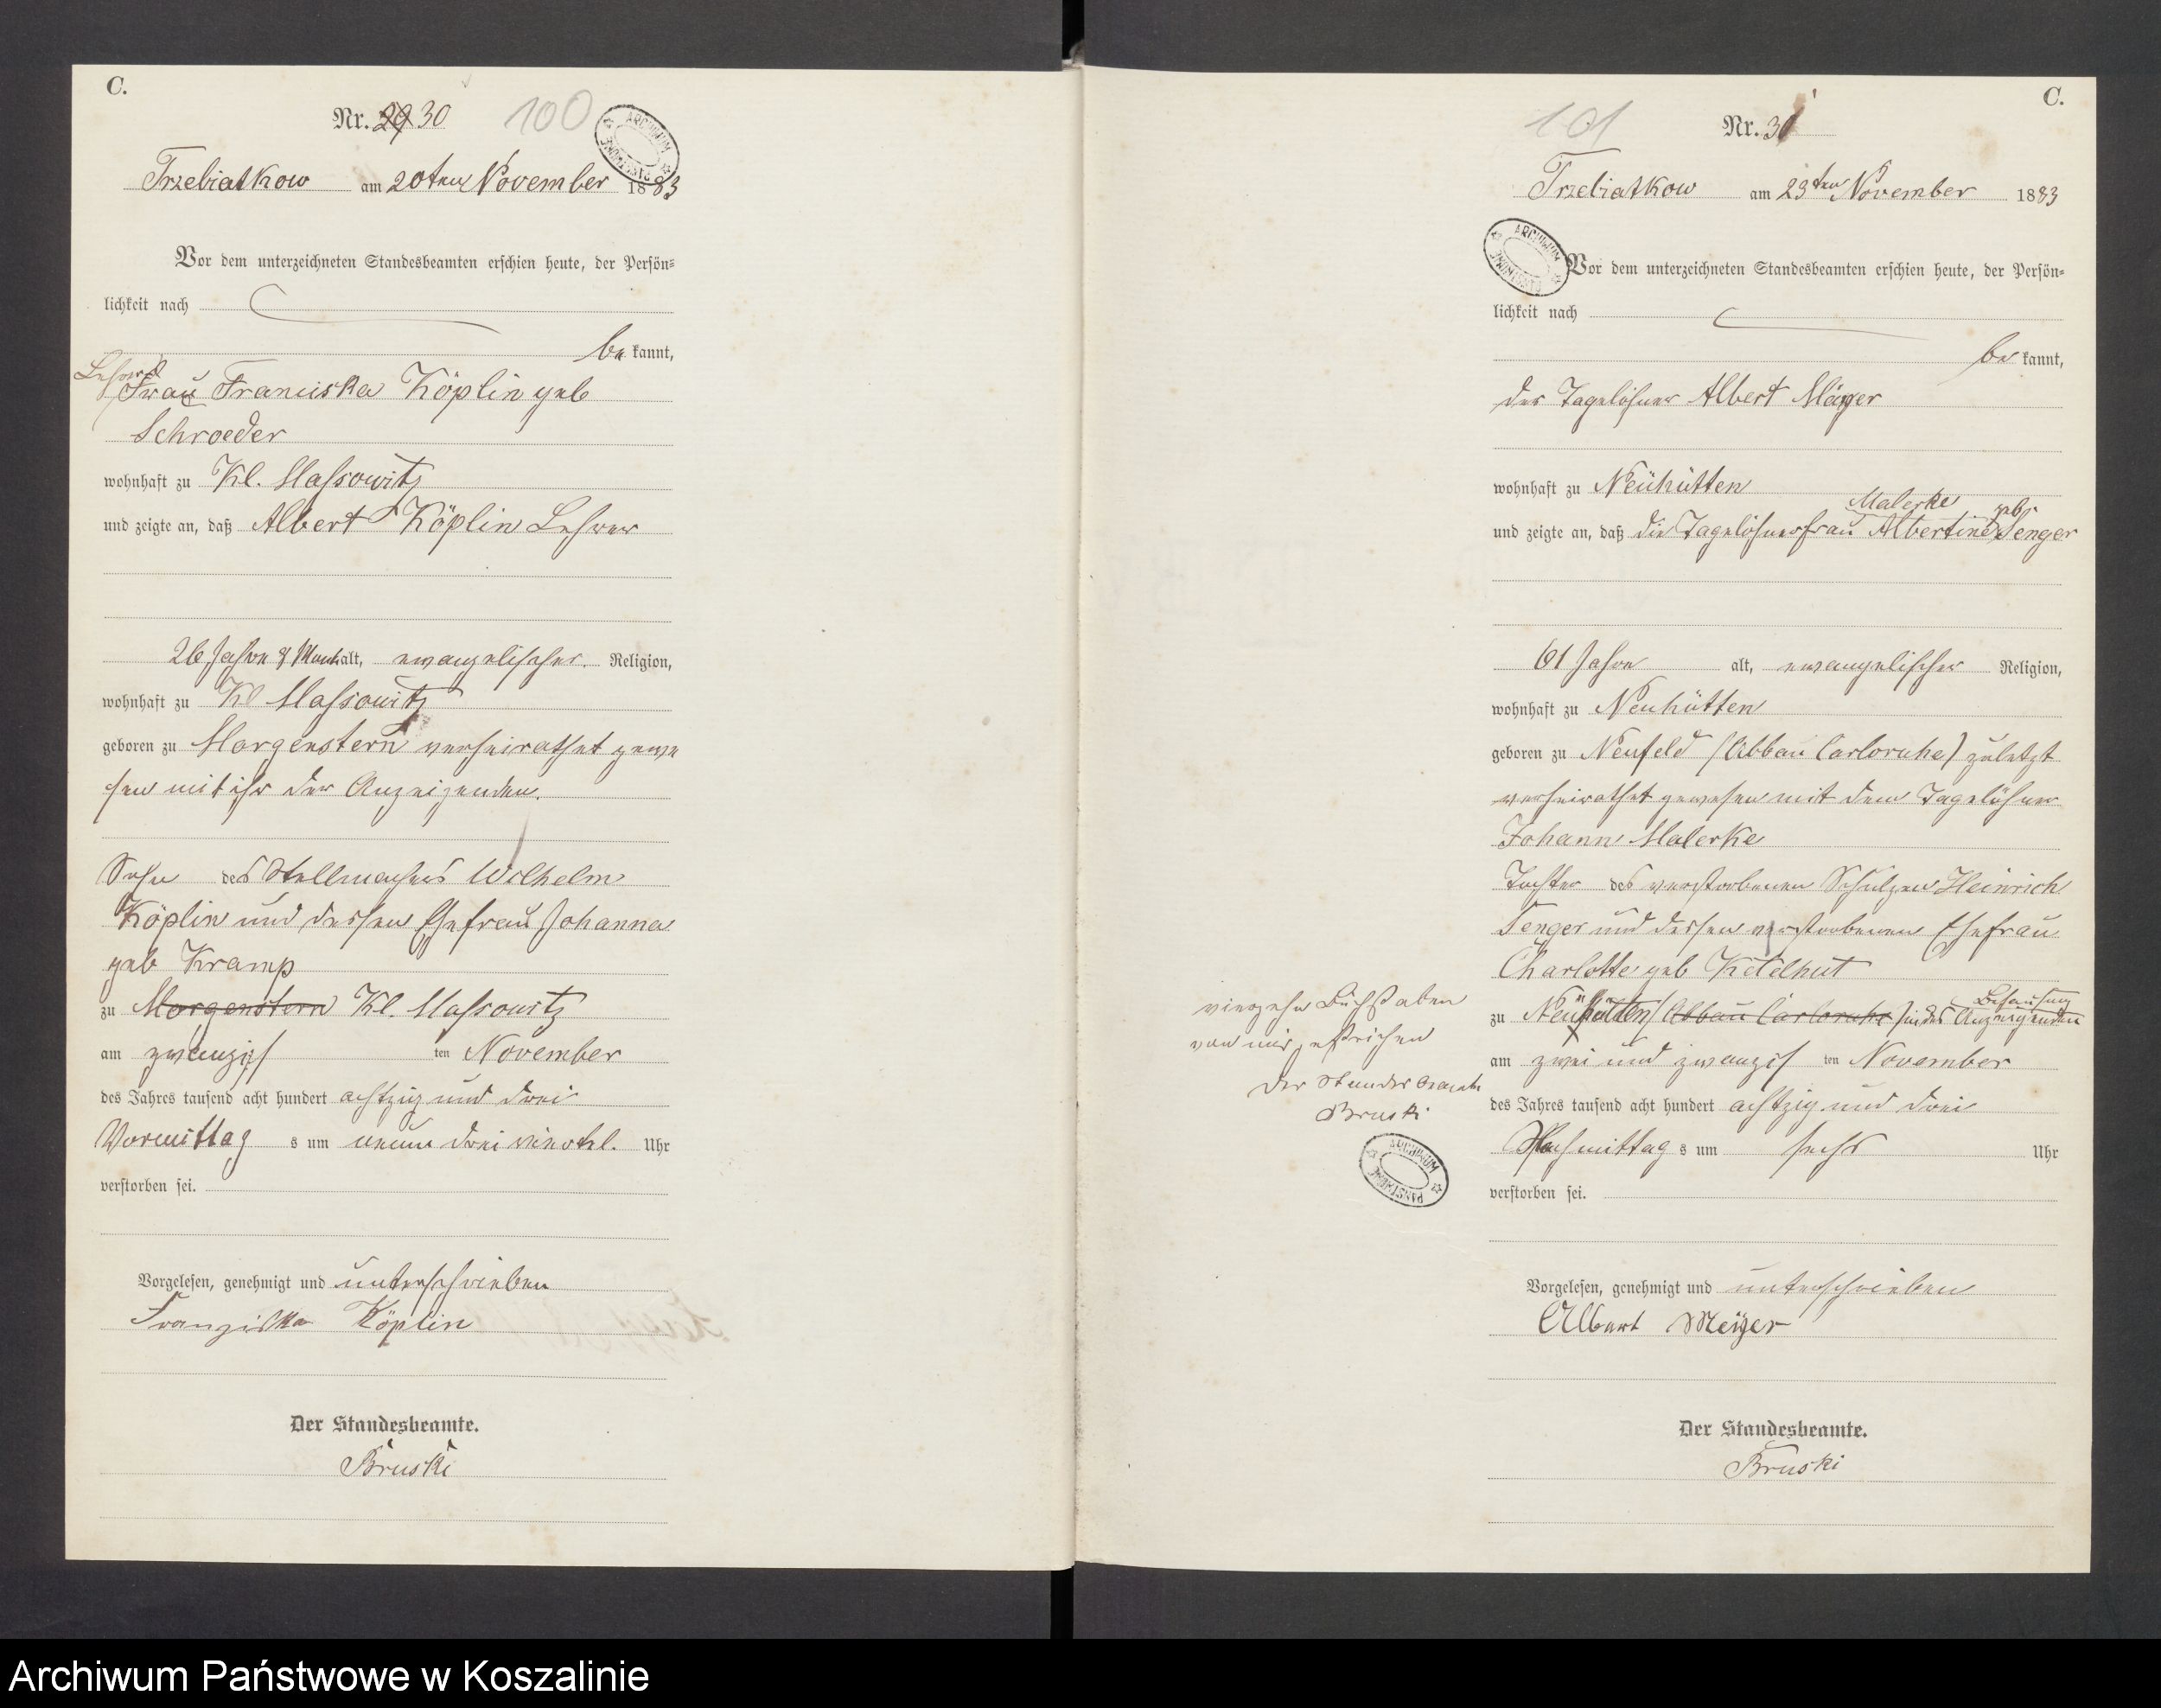 C.
Nr. 29 30
100
ARCHIWUM PAŃSTWOWE
Trzebiatkow am 20ten November 1883
Vor dem unterzeichneten Standesbeamten erschien heute, der Persön-
lichkeit nach
be kannt,
Lehrer
Frau Franciska Köplin geb
Schroeder
wohnhaft zu Kl. Massowitz
und zeigte an, daß Albert Köplin Lehrer
26 Jahre 8 Monat alt, ewangelischer Religion,
wohnhaft zu Kl Massowitz
geboren zu Morgenstern verheirathet gewe
sen mit ihr der Anzeigenden.
Sohn des Stellmachers Wilhelm
Köplin und dessen Ehefrau Johanna
geb Kramp
zu Morgenstern Kl. Massowitz
am zwanzigs ten November
des Jahres tausend acht hundert achtzig und drei
Vormittag s um neun drei viertel. Uhr
verstorben sei.
Vorgelesen, genehmigt und unterschrieben
Franziska Köplin
Der Standesbeamte.
Bruski
C.
101
Nr. 31
Trzebiatkow am 23ten November 1883
ARCHIWUM PAŃSTWOWE
Vor dem unterzeichneten Standesbeamten erschien heute, der Persön-
lichkeit nach
be kannt,
der Tagelöhner Albert Meÿer
wohnhaft zu Neuhütten
Malerke geb
und zeigte an, daß die Tagelöhnerfrau Albertine Senger
61 Jahre alt, ewangelischer Religion,
wohnhaft zu Neuhütten
geboren zu Neufeld (Abbau Carlsruhe) zuletzt
verheirathet gewesen mit dem Tagelöhner
Johann Malerke
Tochter des verstorbenen Schulzen Heinrich
Senger und dessen verstorbenen Ehefrau
Charlotte geb Ketelhut
Behausung
zu Neuhütten (Abbau Carlsruhe) in des Anzeigenden
am zwei und zwanzigs ten November
des Jahres tausend acht hundert achtzig und drei
Nachmittag s um sechs Uhr
verstorben sei.
vierzehn Buchstaben
von mir gestrichen
Der Standesbeamte
Bruski
ARCHIWUM PAŃSTWOWE
Vorgelesen, genehmigt und unterschrieben
Albert Meÿer
Der Standesbeamte.
Bruski
Archiwum Państwowe w Koszalinie